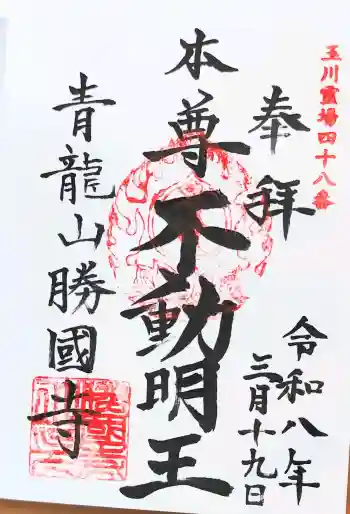 玉川靈場四十八番
奉拜
令和八年
三月十九日
本尊不動明王
青龍山勝國寺